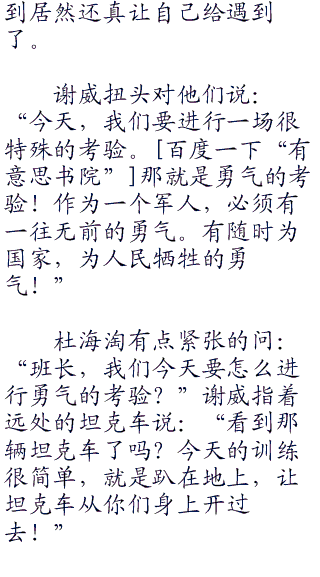 到居然还真让自己给遇到
了。
谢威扭头对他们说：
“今天，我们要进行一场很
特殊的考验。[百度一下“有
意思书院”]那就是勇气的考
验！作为一个军人，必须有
一往无前的勇气。有随时为
国家，为人民牺牲的勇
气！”
杜海淘有点紧张的问：
“班长，我们今天要怎么进
行勇气的考验？”谢威指着
远处的坦克车说：“看到那
辆坦克车了吗？今天的训练
很简单，就是趴在地上，让
坦克车从你们身上开过
去！”